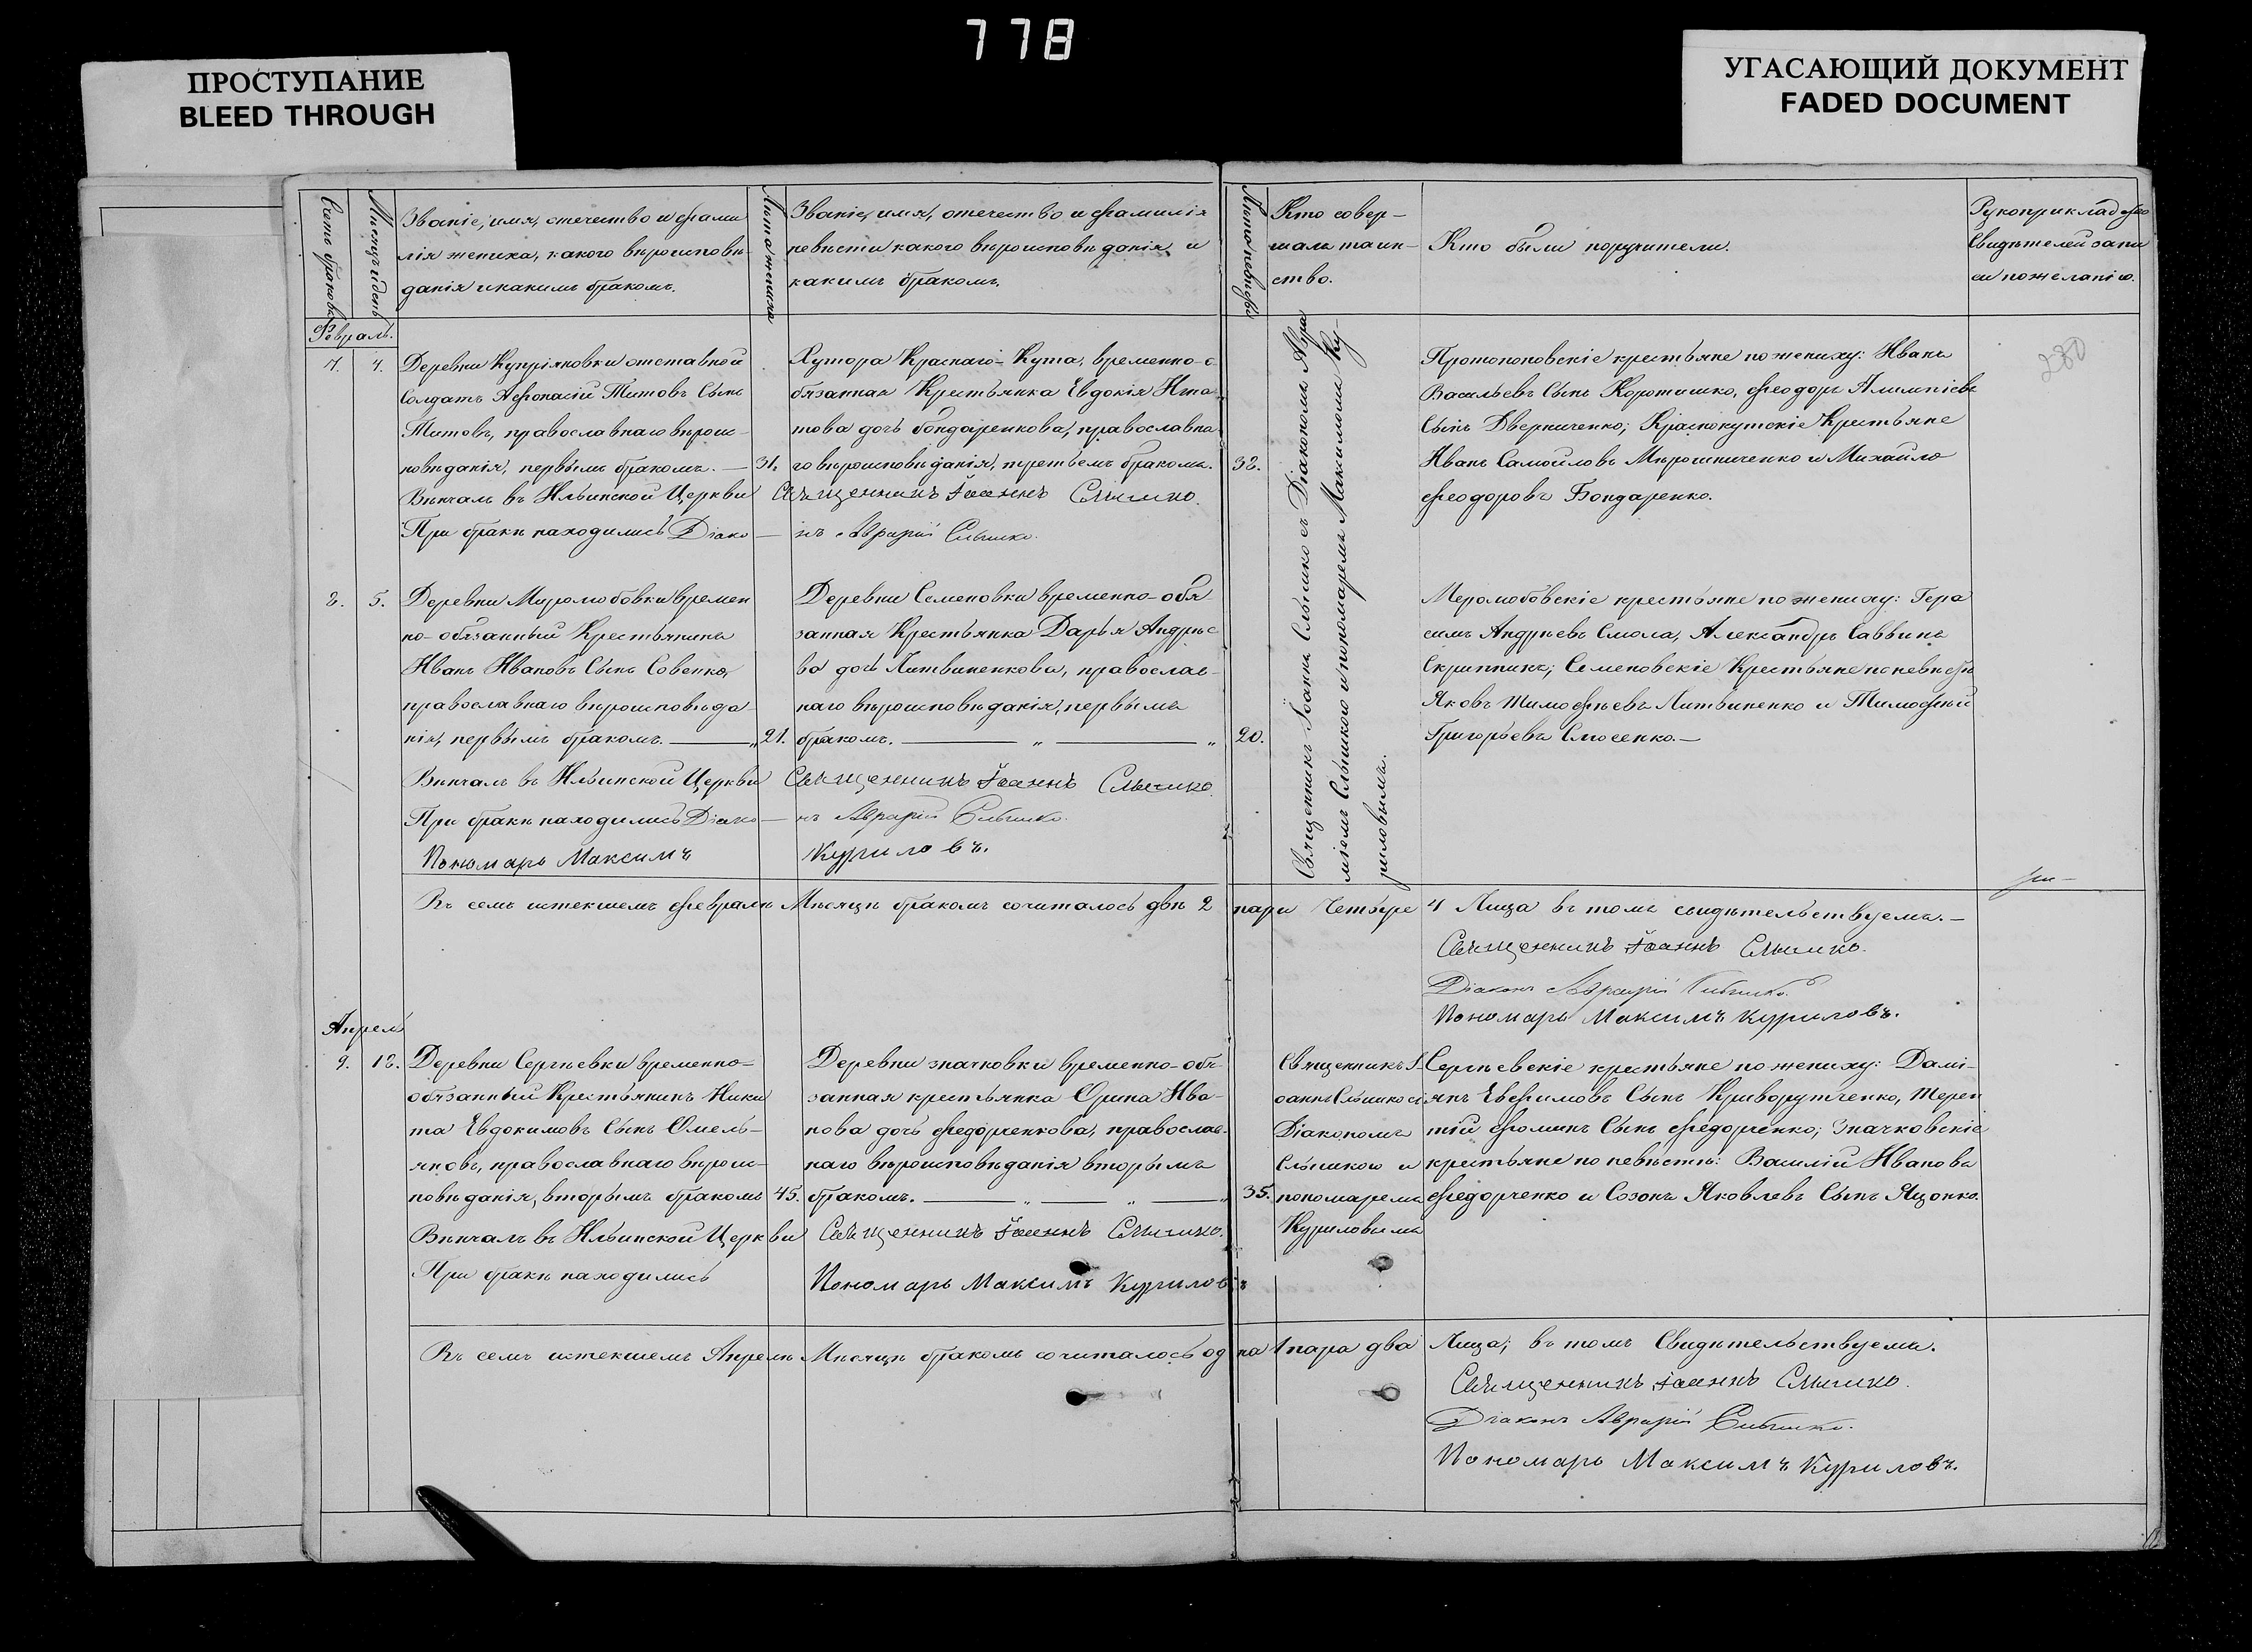 778
ПРОСТУПАНИЕ
BLEED THROUGH
УГАСАЮЩИЙ ДОКУМЕНТ
FADED DOCUMENT
Счетъ браковъ
Мѣсяцъ и день
Званіе, имя, отечество и фами
лія жениха, какого вѣроисповѣ-
данія и какимъ бракомъ.
Лѣта жениха
Званіе, имя, отечество и фамилія
невѣсты какого вѣроисповѣданія и
какимъ бракомъ.
Лѣта невѣсты
Кто совер-
шалъ таин-
ство.
Кто были поручители.
Рукоприкладство
Свидѣтелей запи
си по желанію.
Февраль.
7. 4.
Деревни Купріяновки отставной
Солдатъ Афонасій Титовъ Сынъ
Титовъ, православнаго вѣроис-
повѣданія, первымъ бракомъ. — 31.
Вѣнчалъ въ Ильинской Церкви
При бракѣ находились Діако-
Хутора Краснаго-Кута, временно-о
бязанная Крестьянка Евдокія Игна
това дочь Бондаренкова, православна
го вѣроисповѣданія, третьемъ бракомъ. 32.
Священникъ Іоаннъ Слышко.
нъ Аврамій Слышко.
Священникъ Іоаннъ Слышко съ Діакономъ Авра
міемъ Слышкою и пономаремъ Максимомъ Ку-
риловымъ.
Протопоповскіе крестьяне по жениху: Иванъ
Васильевъ Сынъ Коротишко, Феодоръ Алимпіевъ
Сынъ Дверниченко; Краснокутскіе Крестьяне
Иванъ Самойловъ Мѣрошниченко и Михайло
Феодоровъ Бондаренко.
230
8. 5.
Деревни Миролюбовки времен
но-обязанный Крестьянинъ
Иванъ Ивановъ Сынъ Совенко,
православнаго вѣроисповѣда
нія, первымъ бракомъ. — „ 21.
Вѣнчалъ въ Ильинской Церкви
При бракѣ находились Діако-
Пономарь Максимъ
Деревни Семеновки временно-обя
занная Крестьянка Дарья Андрѣе
ва дочь Литвиненкова, православ-
наго вѣроисповѣданія, первымъ
бракомъ. — „ — „ 20.
Священникъ Іоаннъ Слышко.
нъ Аврамій Слышко.
Куриловъ.
Меролюбовскіе крестьяне по жениху: Гера
симъ Андрѣевъ Смола, Александръ Саввинъ
Скрипникъ; Семеновскіе Крестьяне по невѣстѣ
Яковъ Тимофѣевъ Литвиненко и Тимофѣй
Григорьевъ Слюсенко.—
Въ семъ истекшемъ Февралѣ Мѣсяцѣ бракомъ сочиталось двѣ 2 пары Четыре 4 Лица въ томъ свидѣтельствуемъ.—
Священникъ Іоаннъ Слышко.
Діаконъ Аврамій Слышко.
Пономарь Максимъ Куриловъ.
Апрель
9. 18.
Деревни Сергѣевки временно-
обязанный Крестьянинъ Ники
та Евдокимовъ Сынъ Омель-
яновъ, православнаго вѣроис-
повѣданія, вторымъ бракомъ 45.
Вѣнчалъ въ Ильинской Церкви
При бракѣ находились
Деревни Значковки временно-обя-
занная крестьянка Орина Ива-
нова дочь Федорченкова, православ-
наго вѣроисповѣданія вторымъ
бракомъ. — „ — „ — „ 35.
Священникъ Іоаннъ Слышко.
Пономарь Максимъ Куриловъ
Священникъ І-
оаннъ Слышко съ
Діакономъ
Слышкою и
пономаремъ
Куриловымъ
Сергѣевскіе крестьяне по жениху: Дамі-
янъ Евфимовъ Сынъ Криворутченко, Терен
тій Фоминъ Сынъ Федорченко; Значковскіе
крестьяне по невѣстѣ: Василій Ивановъ
Федорченко и Созонъ Яковлевъ Сынъ Яценко.
Въ семъ истекшемъ Апрелѣ Мѣсяцѣ бракомъ сочиталось одна 1 пара два Лица; въ томъ Свидѣтельствуемъ.
Священникъ Іоаннъ Слышко.
Діаконъ Аврамій Слышко.
Пономарь Максимъ Куриловъ.